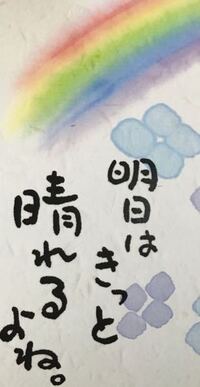 明日は
きっと
晴れる
よね。